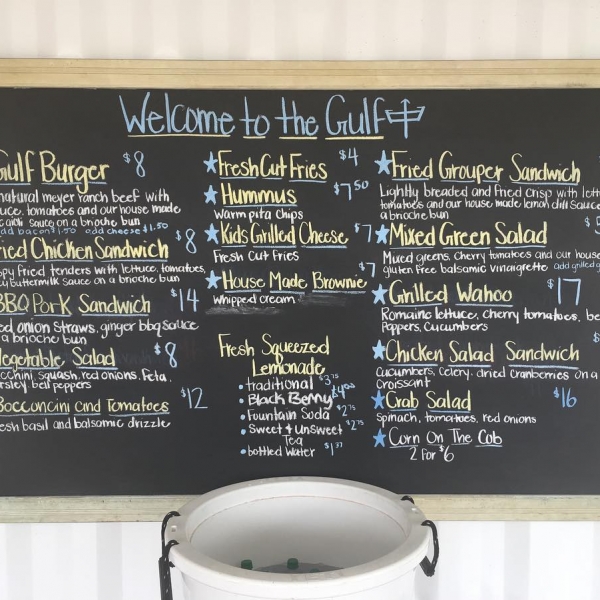 Welcome to the Gulf
Gulf Burger $8
natural meyer ranch beef with
tomatoes and our house made
sauce on a brioche bun
add bacon 1.50 add cheese $1.50
Fried Chicken Sandwich $8
fried tenders with lettuce, tomatoes,
buttermilk sauce on a brioche bun
BBQ Pork Sandwich $14
onion straws, ginger bbq sauce
a brioche bun
Vegetable Salad $8
squash, red onions, feta,
bell peppers
Bocconcini and Tomatoes $12
basil and balsamic drizzle
Fresh Cut Fries $4
Hummus $7.50
Warm pita chips
Kids Grilled Cheese $7
Fresh Cut Fries
House Made Brownie $7
Whipped cream
Fresh Squeezed
Lemonade
• traditional $3.75
• Black Berry $4.00
• Fountain Soda $2.75
• Sweet & UnSweet $2.75
Tea
• bottled Water $1.37
Fried Grouper Sandwich
Lightly breaded and fried crisp with
tomatoes and our house made lemon dill Sauce
a brioche bun
Mixed Green Salad
Mixed greens, cherry tomatoes and our house
gluten free balsamic vinaigrette add grilled
Grilled Wahoo $17
Romaine lettuce, cherry tomatoes,
Peppers, Cucumbers
Chicken Salad Sandwich
Cucumbers, Celery, dried cranberries on a
Croissant
Crab Salad $16
Spinach, tomatoes, red onions
Corn On The Cob
2 for $6